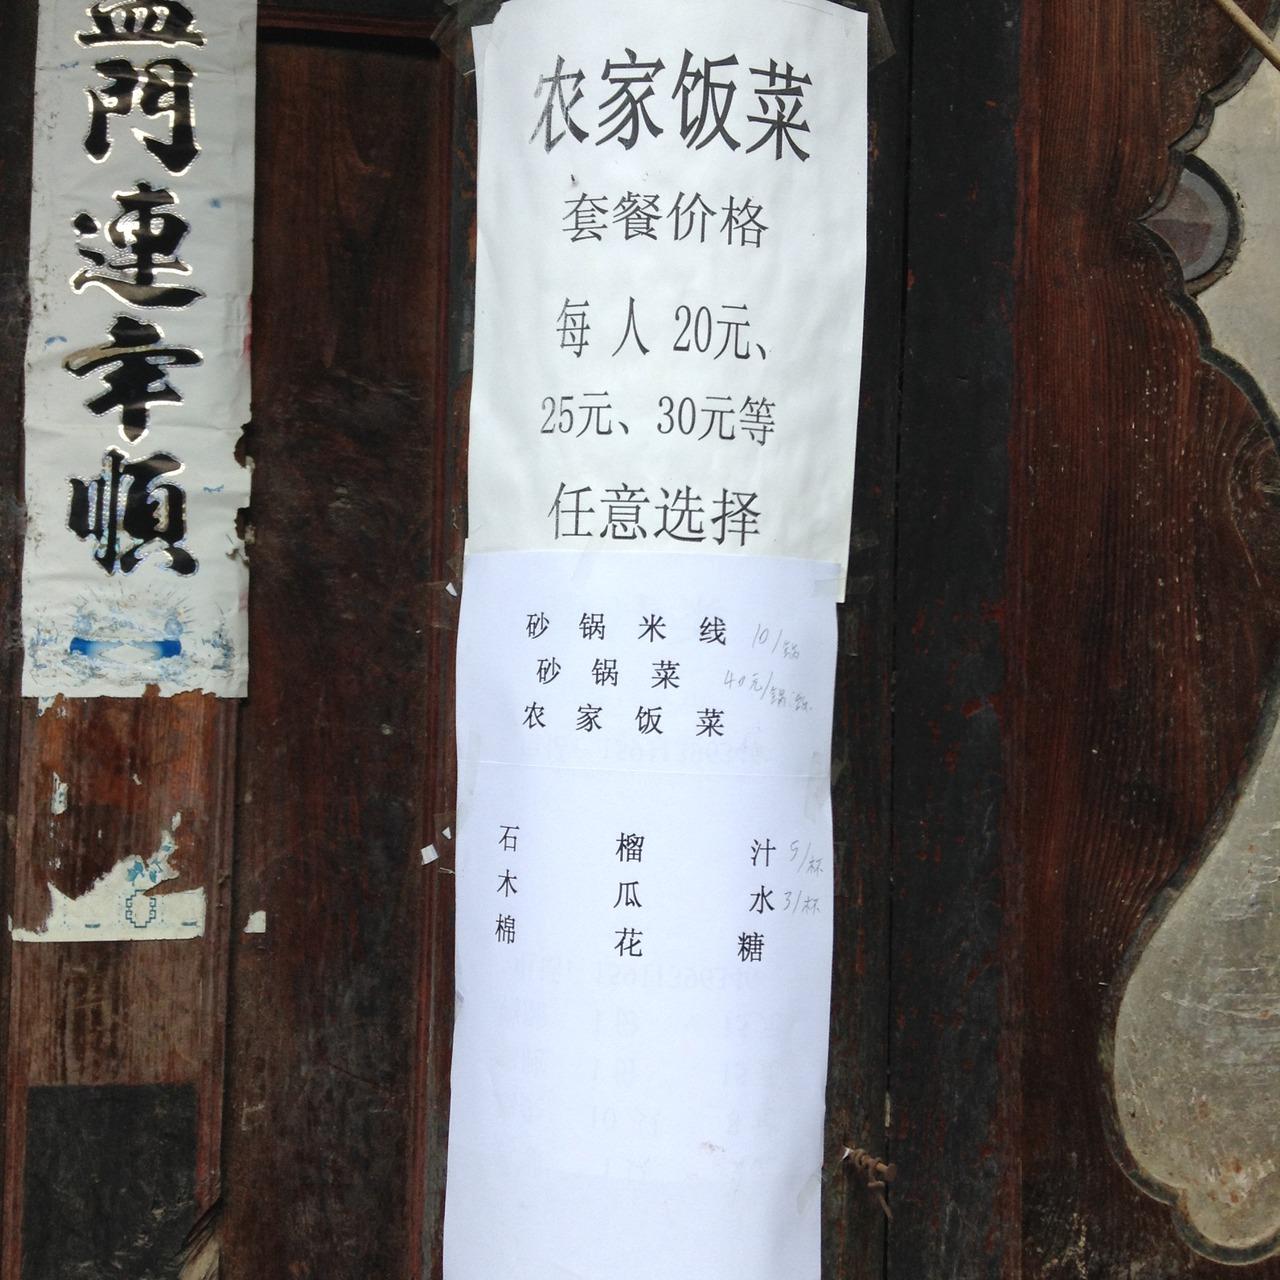 農家饭菜
套餐价格
每人 20元、
25元、30元等
任意选择
砂锅米线 10/锅
砂锅菜 40元/锅
农家饭菜
石榴汁 5/杯
木瓜水 3/杯
棉花糖
門連幸順